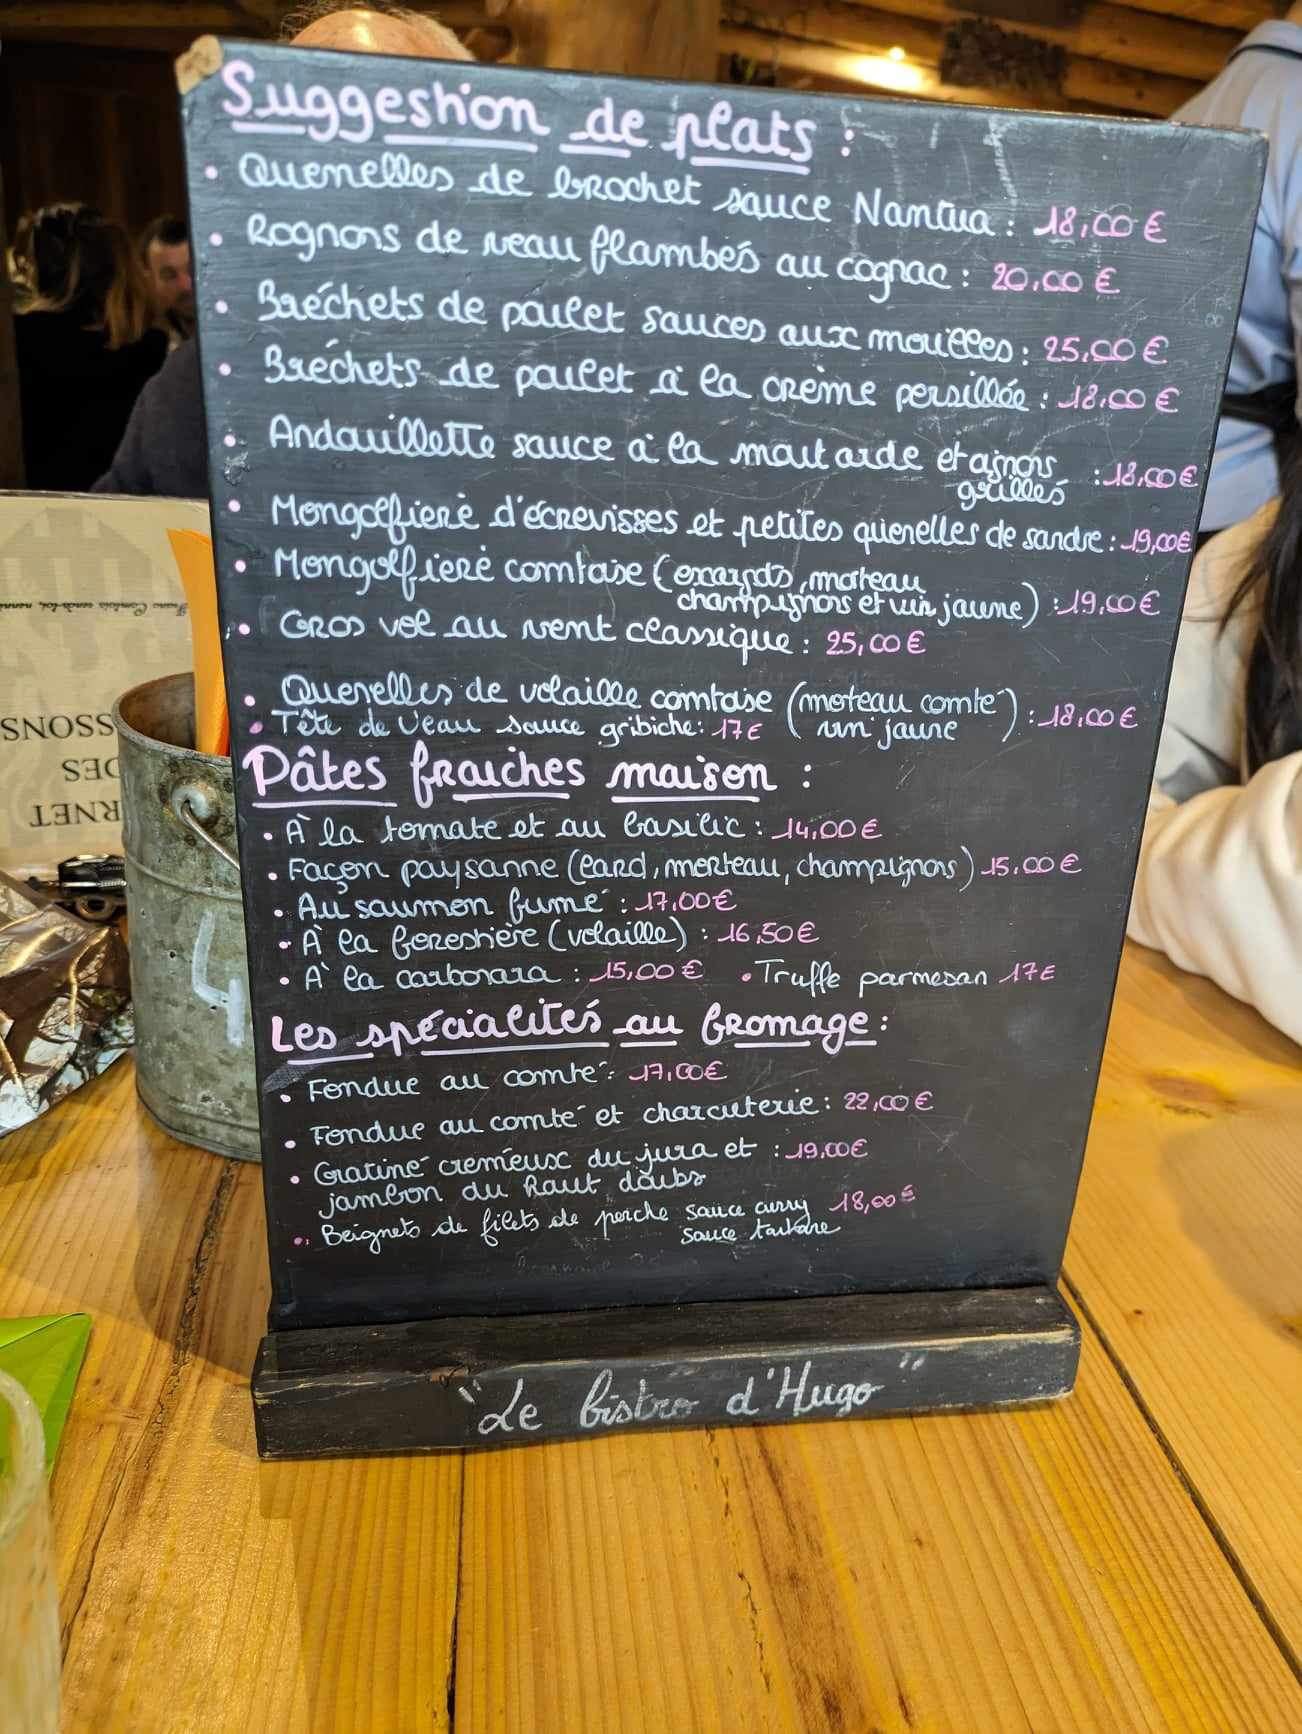 Suggestion de plats :
• Quenelles de brochet sauce Nantua : 18,00 €
• Rognons de veau flambés au cognac : 20,00 €
• Bréchets de poulet sauces aux morilles : 25,00 €
• Bréchets de poulet à la crème persillée : 18,00 €
• Andouillette sauce à la moutarde et oignons grillés : 18,00 €
• Mongolfière d'écrevisses et petites quenelles de sandre : 19,00 €
• Mongolfière comtoise (escargots, morteau
champignons et vin jaune) : 19,00 €
• Gros vol au vent classique : 25,00 €
• Quenelles de volaille comtoise (morteau comté
vin jaune) : 18,00 €
• Tête de Veau sauce gribiche : 17 €
Pâtes fraîches maison :
• À la tomate et au basilic : 14,00 €
• Façon paysanne (lard, morteau, champignons) 15,00 €
• Au saumon fumé : 17,00 €
• À la forestière (volaille) : 16,50 €
• À la carbonara : 15,00 € • Truffe parmesan 17 €
Les spécialités au fromage :
• Fondue au comté : 17,00 €
• Fondue au comté et charcuterie : 22,00 €
• Gratiné crémeux du jura et : 19,00 €
jambon du haut doubs
• Beignets de filets de perche sauce curry 18,00 €
sauce tartare
"Le bistro d'Hugo"
4